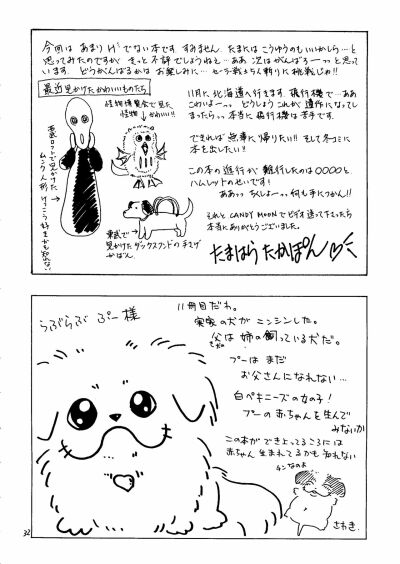 今回は あまり H でない本です すみません. たまには こうゆうのもいいかしら…と
思ってみたのですが きっと不評でしょうねえ… ああ 次はがんばすーっっ と思って
います. どうがんばるかは お楽しみに… セーラ戦士5人斬りに挑戦じゃ!!
最近見かけたかわいいものたち
怪物博覧会で見た
怪物 かわいい!!
東武ロフトで見かけた
ムンク人形 けっこう好きかも知れない
東武で
見かけたダックスフンドの手さげ
かばん.
11月に 北海道へ行きます. 飛行機で…ああ
こわいよー… どうしよう これが遺作になってし
まったらっっ 本当に 飛行機は苦手です.
できれば 無事に帰りたい!! そして冬コミに
本を出したい!!
この本の進行が 難行したのは〇〇〇〇と
ハムレットのせいです!
ああっっ ちくしょーっっ何も手につかん!!
それと CANDY MOONでビデオ送って下さったら
本当にありがとうございました.
たまはら たかぽん
らぶらぶ ぷー様
11冊目だわ.
実家の犬が ニンシンした。
父は 姉の飼っている犬だ。
プーは まだ
お父さんになれない…
白ペキニーズの女の子!
プーの赤ちゃんを生んで
みないか
この本ができよってるころには
赤ちゃん 生まれてるかも 知れない
チンなのよ
さわき.
32